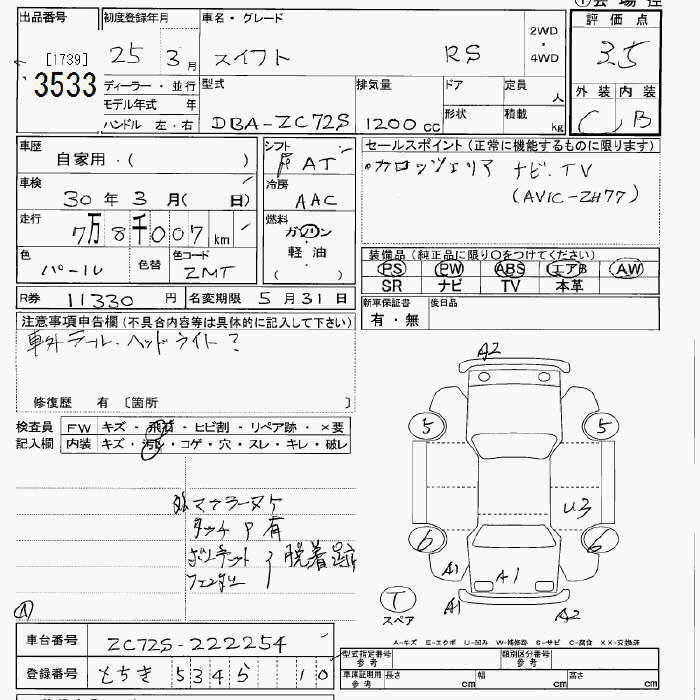 出品番号 初度登録年月 車名・グレード 2WD・4WD 評価点
[1739] 25年 3月 スイフト RS 3.5
3533 ディーラー・並行 型式 排気量 ドア 定員 人 外装 内装
モデル年式 年 形状 積載 kg C B
ハンドル 左・右 DBA-ZC72S 1200cc
車歴 自家用・( ) シフト AT セールスポイント(正常に機能するものに限ります)
車検 30年 3月( 日) 冷房 AAC カロッツェリア ナビ.TV
(AVIC-ZH77)
走行 7万8千007km 燃料 ガソリン
軽油
( )
装備品(純正品に限り○をつけてください)
色 パール 色替 色コード ZMT PS PW ABS エアB AW
SR ナビ TV 本革
R券 11330円 名変期限 5月31日 新車保証書 有・無 後日品
注意事項申告欄(不具合内容等は具体的に記入して下さい)
車外テール.ヘッドライト?
修復歴 有 〔箇所 〕
検査員 FW キズ・飛石・ヒビ割・リペア跡・×要
記入欄 内装 キズ・汚れ・コゲ・穴・スレ・キレ・破レ
A2
5 5
U3
6 6
A1 A1
A1 A2
T
スペア
マフラーヌケ
タッチP有
ボンネット 脱着跡
フェンダー
A
A-キズ E-エクボ U-凹み W-補修跡 S-サビ C-腐食 XX-交換済
車台番号 ZC72S-222254 型式指定番号 参考 類別区分番号 参考
登録番号 とちぎ 534 ら 10 車庫証明用 参考 長さ cm 幅 cm 高さ cm